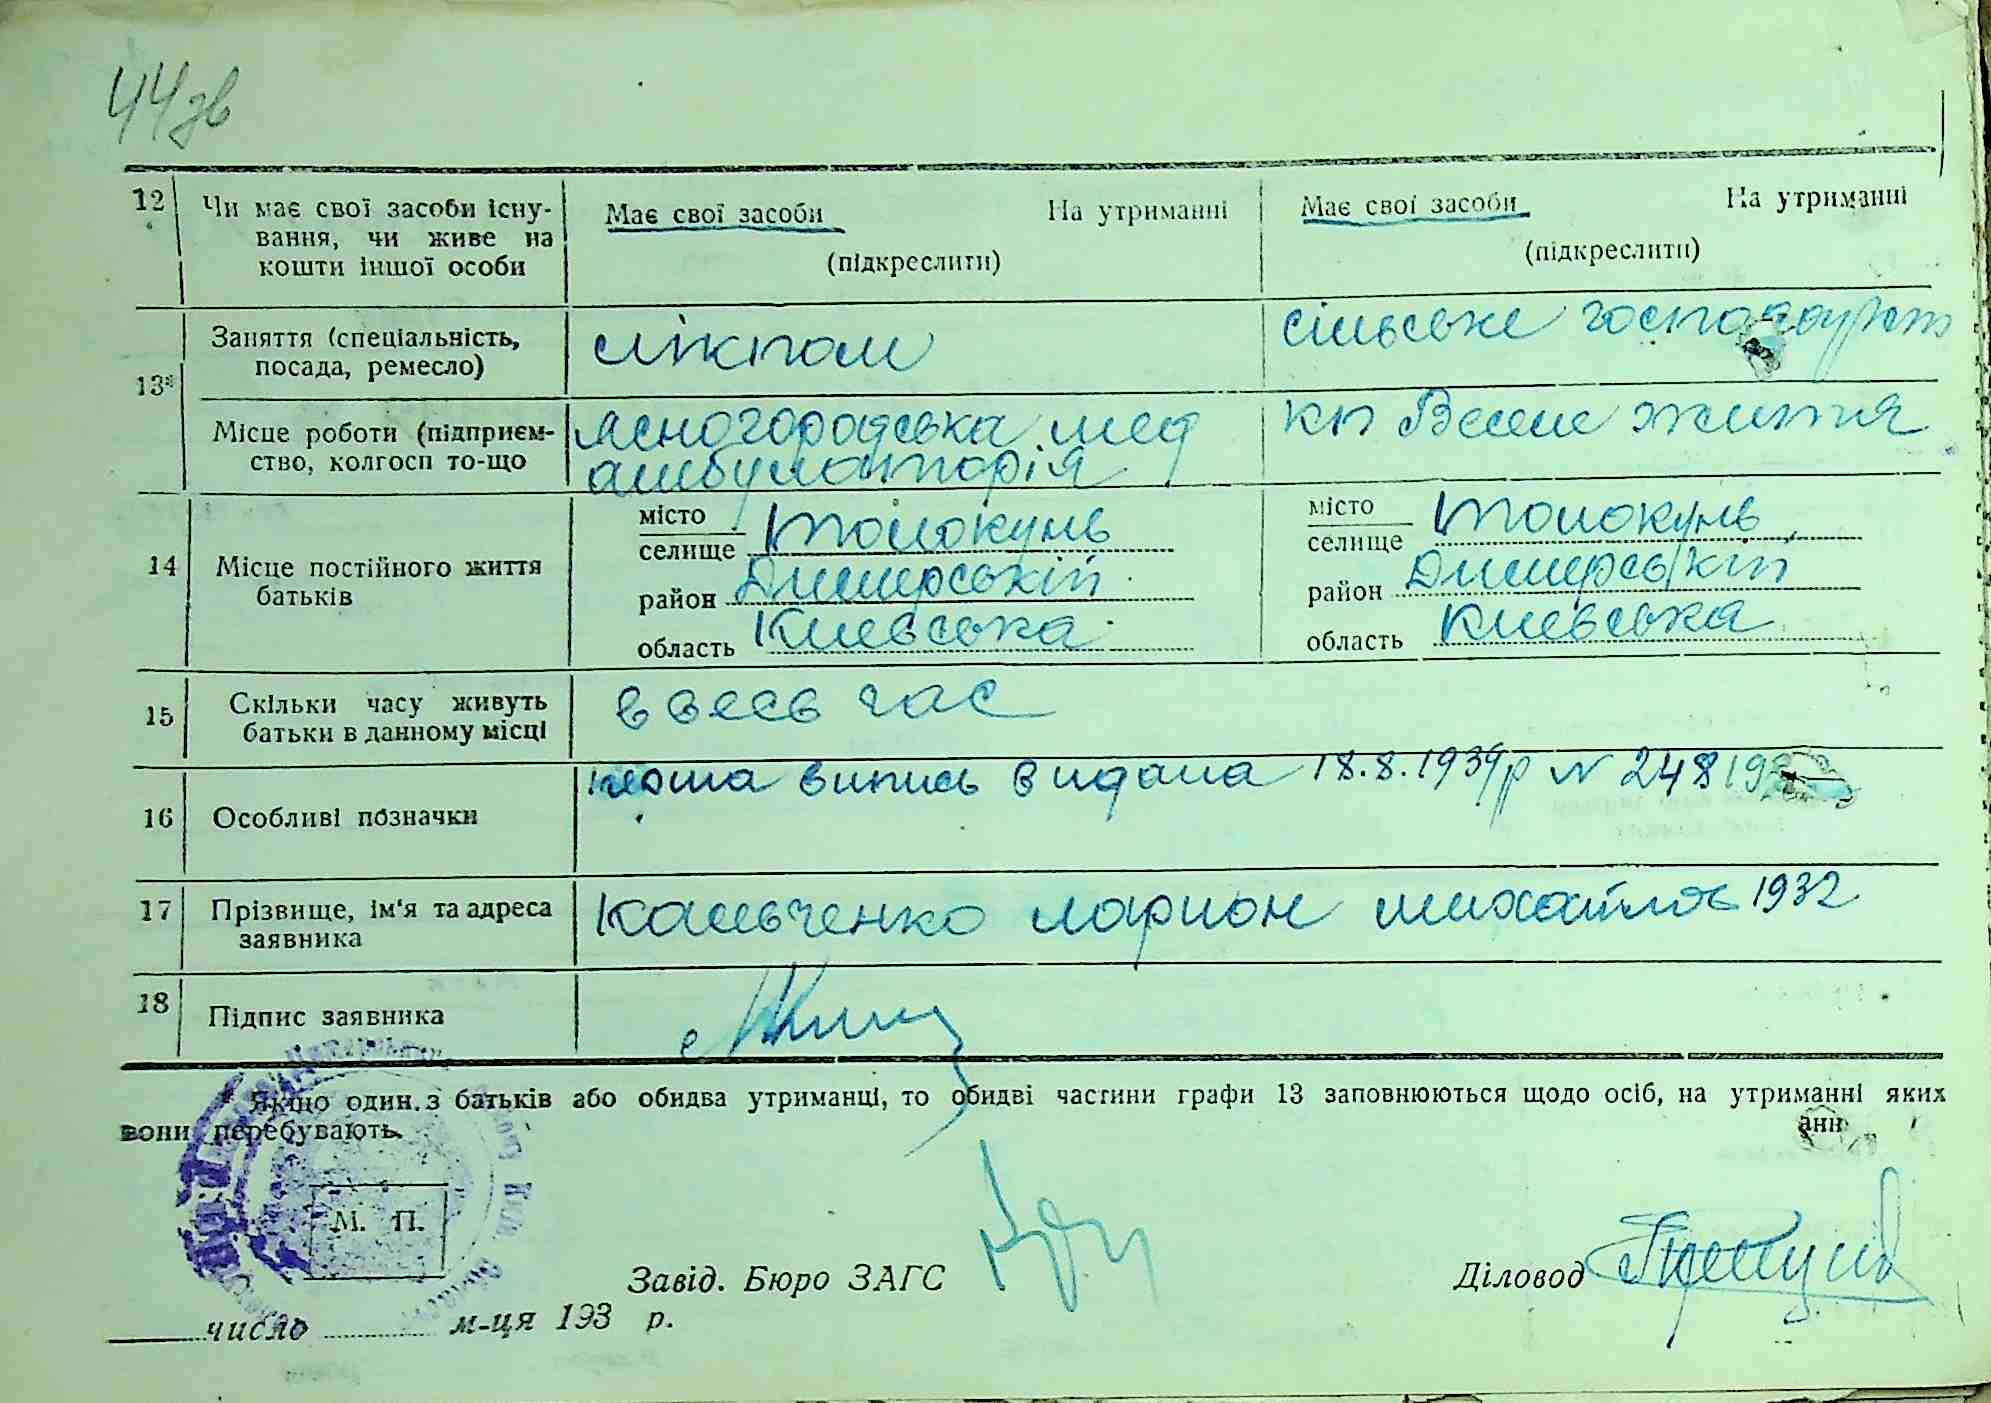 44 зв
12 Чи має свої засоби існу-
вання, чи живе на
кошти іншої особи
Має свої засоби На утриманні
(підкреслити)
Має свої засоби На утриманні
(підкреслити)
13* Заняття (спеціальність,
посада, ремесло)
лікпом
сільське господарст
Місце роботи (підприєм-
ство, колгосп то-що
Ясногородська мед
амбулаторія
кп Веселе життя
14 Місце постійного життя
батьків
місто
селище Толокунь
район Димерський
область Киевська
місто
селище Толокунь
район Димерський
область Киевська
15 Скільки часу живуть
батьки в данному місці
ввесь час
16 Особливі позначки
перша випись видана 18.8.1939р N 248
17 Прізвище, ім'я та адреса
заявника
Кальченко Ларион Михайлов 1932
18 Підпис заявника
* Якщо один з батьків або обидва утриманці, то обидві частини графи 13 заповнюються щодо осіб, на утриманні яких
вони перебувають.
М. П.
Завід. Бюро ЗАГС
Діловод
число м-ця 193 р.